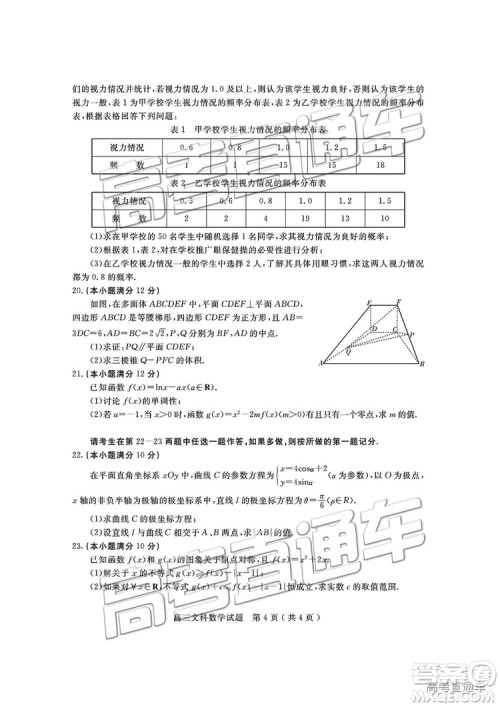 们的视力情况并统计,若视力情况为 1.0 及以上,则认为该学生视力良好,否则认为该学生的
视力一般,表 1 为甲学校学生视力情况的频率分布表,表 2 为乙学校学生视力情况的频率分布
表,根据表格回答下列问题:
表 1 甲学校学生视力情况的频率分布表
视力情况 0.6 0.8 1.0 1.2 1.5
频 数 1 1 15 15 18
表 2 乙学校学生视力情况的频率分布表
视力情况 0.5 0.6 0.8 1.0 1.2 1.5
频 数 2 2 4 19 13 10
(1)求在甲学校的 50 名学生中随机选择 1 名学生,求其视力情况为良好的概率;
(2)根据视力情况的平均数,对在学校推广眼保健操的必要性进行分析;
(3)在乙学校视力情况一般的学生中选择 2 人,了解其具体用眼习惯,求这两人视力情况
都为 0.8 的概率.
20.(本小题满分 12 分)
如图,在多面体 ABCDEF 中,平面 CDEF⊥平面 ABCD,
四边形 CDEF 是
四边形 ABCD 是等腰梯形,
3DC=6,AD=BC=2√2,P,Q
(1)求证:PQ∥平面
(2)求三棱锥 Q-PFC 的体积.
E
F
D
C
P
Q
A
B
21.(本小题满分 12 分)
已知函数 f(x)=lnx-ax(a∈R).
(1)讨论 f(x)的单调性;
(2)若 a=-1,当 g(x)=x²-2mf(x)(m>0)
请考生在第 22-23 两题中任选一题作答,如果多做,则按所做的第一题记分.
22.(本小题满分 10 分)
在平面直角坐标系 xOy 中,曲线 C 的参数方程为{x=4cosα+2 y=4sinα (α为参数),以 O 为极点,以
x 轴的非负半轴为极轴的极坐标系中,直线 l 的极坐标方程为 θ=π/6 (ρ∈R)
(1)求曲线 C 的极坐标方程;
(2)设直线 l 与曲线 C 相交于 A,B 两点,求|AB|的值.
23.(本小题满分 10 分)
已知函数 f(x)和 g(x)的图象关于原点对称,且 f(x)=x²+2x
(1)解关于 x 的不等式 g(x)≥f(x)-|x-1|;
(2)如果对∀x∈R,不等式 g(x)+c≤f(x)-|x-1|恒成立,求实数 c 的取值范围.
高三文科数学试题 第 4 页(共 4 页)
高考直通车
高考直通车
高考直通车